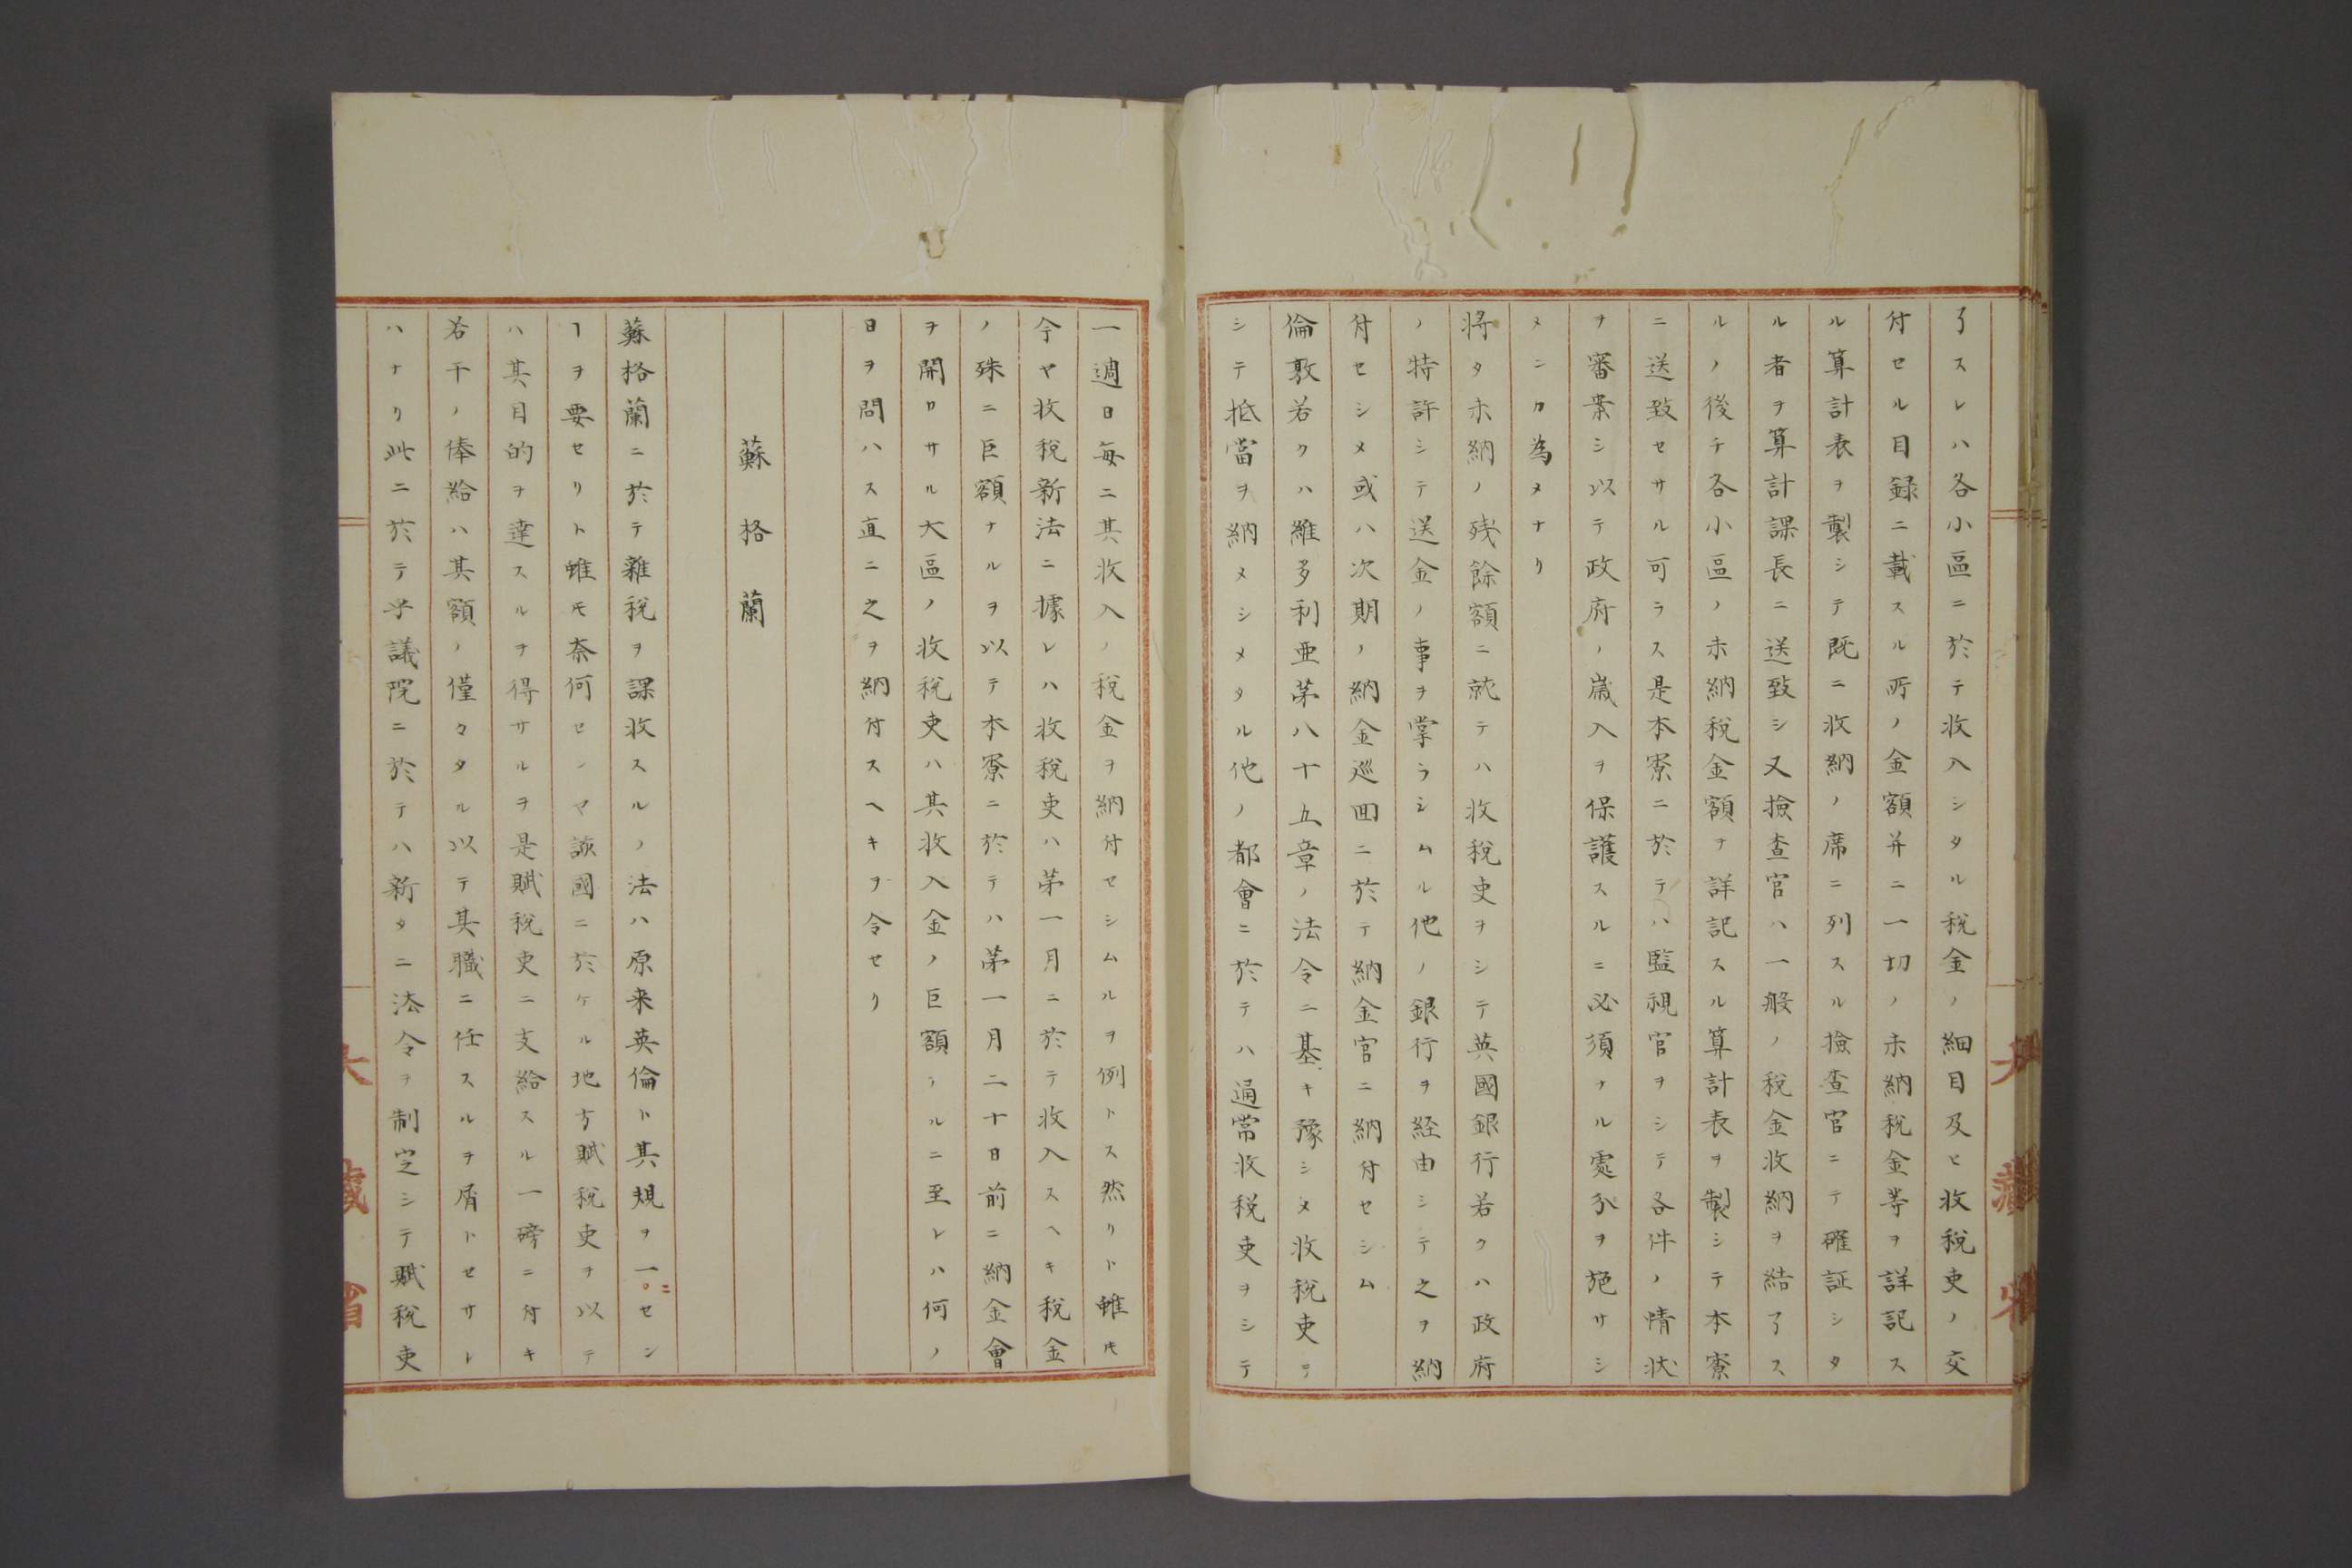 了スレハ各小區ニ於テ收入シタル税金ノ細目及ヒ收税吏ノ交
付セル目録ニ載スル所ノ金額并ニ一切ノ未納税金等ヲ詳記ス
ル算計表ヲ製シテ既ニ收納ノ席ニ列スル撿査官ニテ確証シタ
ル者ヲ算計課長ニ送致シ又撿査官ハ一般ノ税金收納ヲ結了ス
ルノ後チ各小區ノ未納税金額ヲ詳記スル算計表ヲ製シテ本寮
ニ送致セサル可ラス是本寮ニ於テハ監視官ヲシテ各件ノ情状
ヲ審案シ以テ政府ノ歳入ヲ保護スルニ必須ナル處分ヲ施サシ
メンカ為メナリ
将タ未納ノ残餘額ニ就テハ收税吏ヲシテ英國銀行若クハ政府
ノ特許シテ送金ノ事ヲ掌ラシムル他ノ銀行ヲ経由シテ之ヲ納
付セシメ或ハ次期ノ納金巡囬ニ於テ納金官ニ納付セシム
倫敦若クハ維多利亜苐八十五章ノ法令ニ基キ豫シメ收税吏ヲ
シテ抵當ヲ納メシメタル他ノ都會ニ於テハ通常收税吏ヲシテ
一週日毎ニ其收入ノ税金ヲ納付セシムルヲ例トス然リト雖𪜈
今ヤ收税新法ニ據レハ收税吏ハ苐一月ニ於テ收入スヘキ税金
ノ殊ニ巨額ナルヲ以テ本寮ニ於テハ苐一月二十日前ニ納金會
ヲ開カサル大區ノ收税吏ハ其收入金ノ巨額ナルニ至レハ何ノ
日ヲ問ハス直ニ之ヲ納付スヘキヲ令セリ
蘇格蘭
蘇格蘭ニ於テ雜税ヲ課收スルノ法ハ原来英倫ト其規ヲ一ニセン
ヿヲ要セリト雖𪜈奈何センヤ該國ニ於ケル地方賦税吏ヲ以テ
ハ其目的ヲ達スルヲ得サルヲ是賦税吏ニ支給スル一磅ニ付キ
若干ノ俸給ハ其額ノ僅々タル以テ其職ニ任スルヲ屑トセサレ
ハナリ此ニ於テ乎議院ニ於テハ新タニ法令ヲ制定シテ賦税吏
大藏省
大藏省